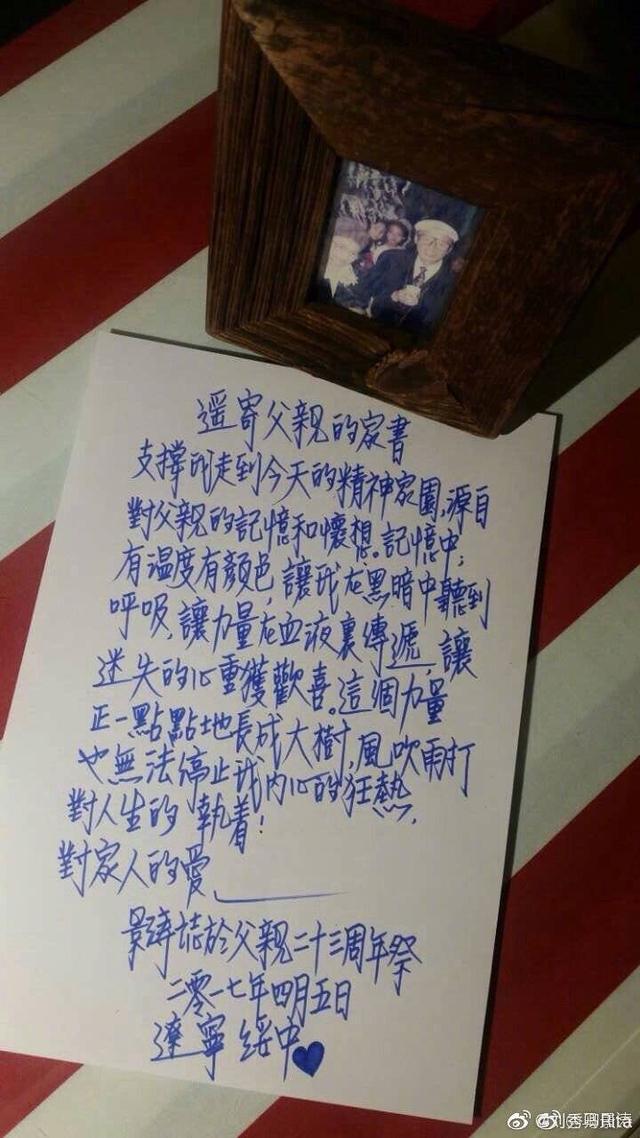 遥寄父親的家書
支撐我走到今天的精神家園,源自
對父親的記憶和懷想。記憶中;
有温度有顏色,讓我在黑暗中聽到
呼吸,讓力量在血液裏傳遞,讓
迷失的心重獲歡喜。這個力量
正一點點地長成大樹,風吹雨打
也無法停止我内心的狂熱,
對人生的執着!
對家人的愛,
誌於父親二十三周年祭
二零一七年四月五日
遼寧 綏中